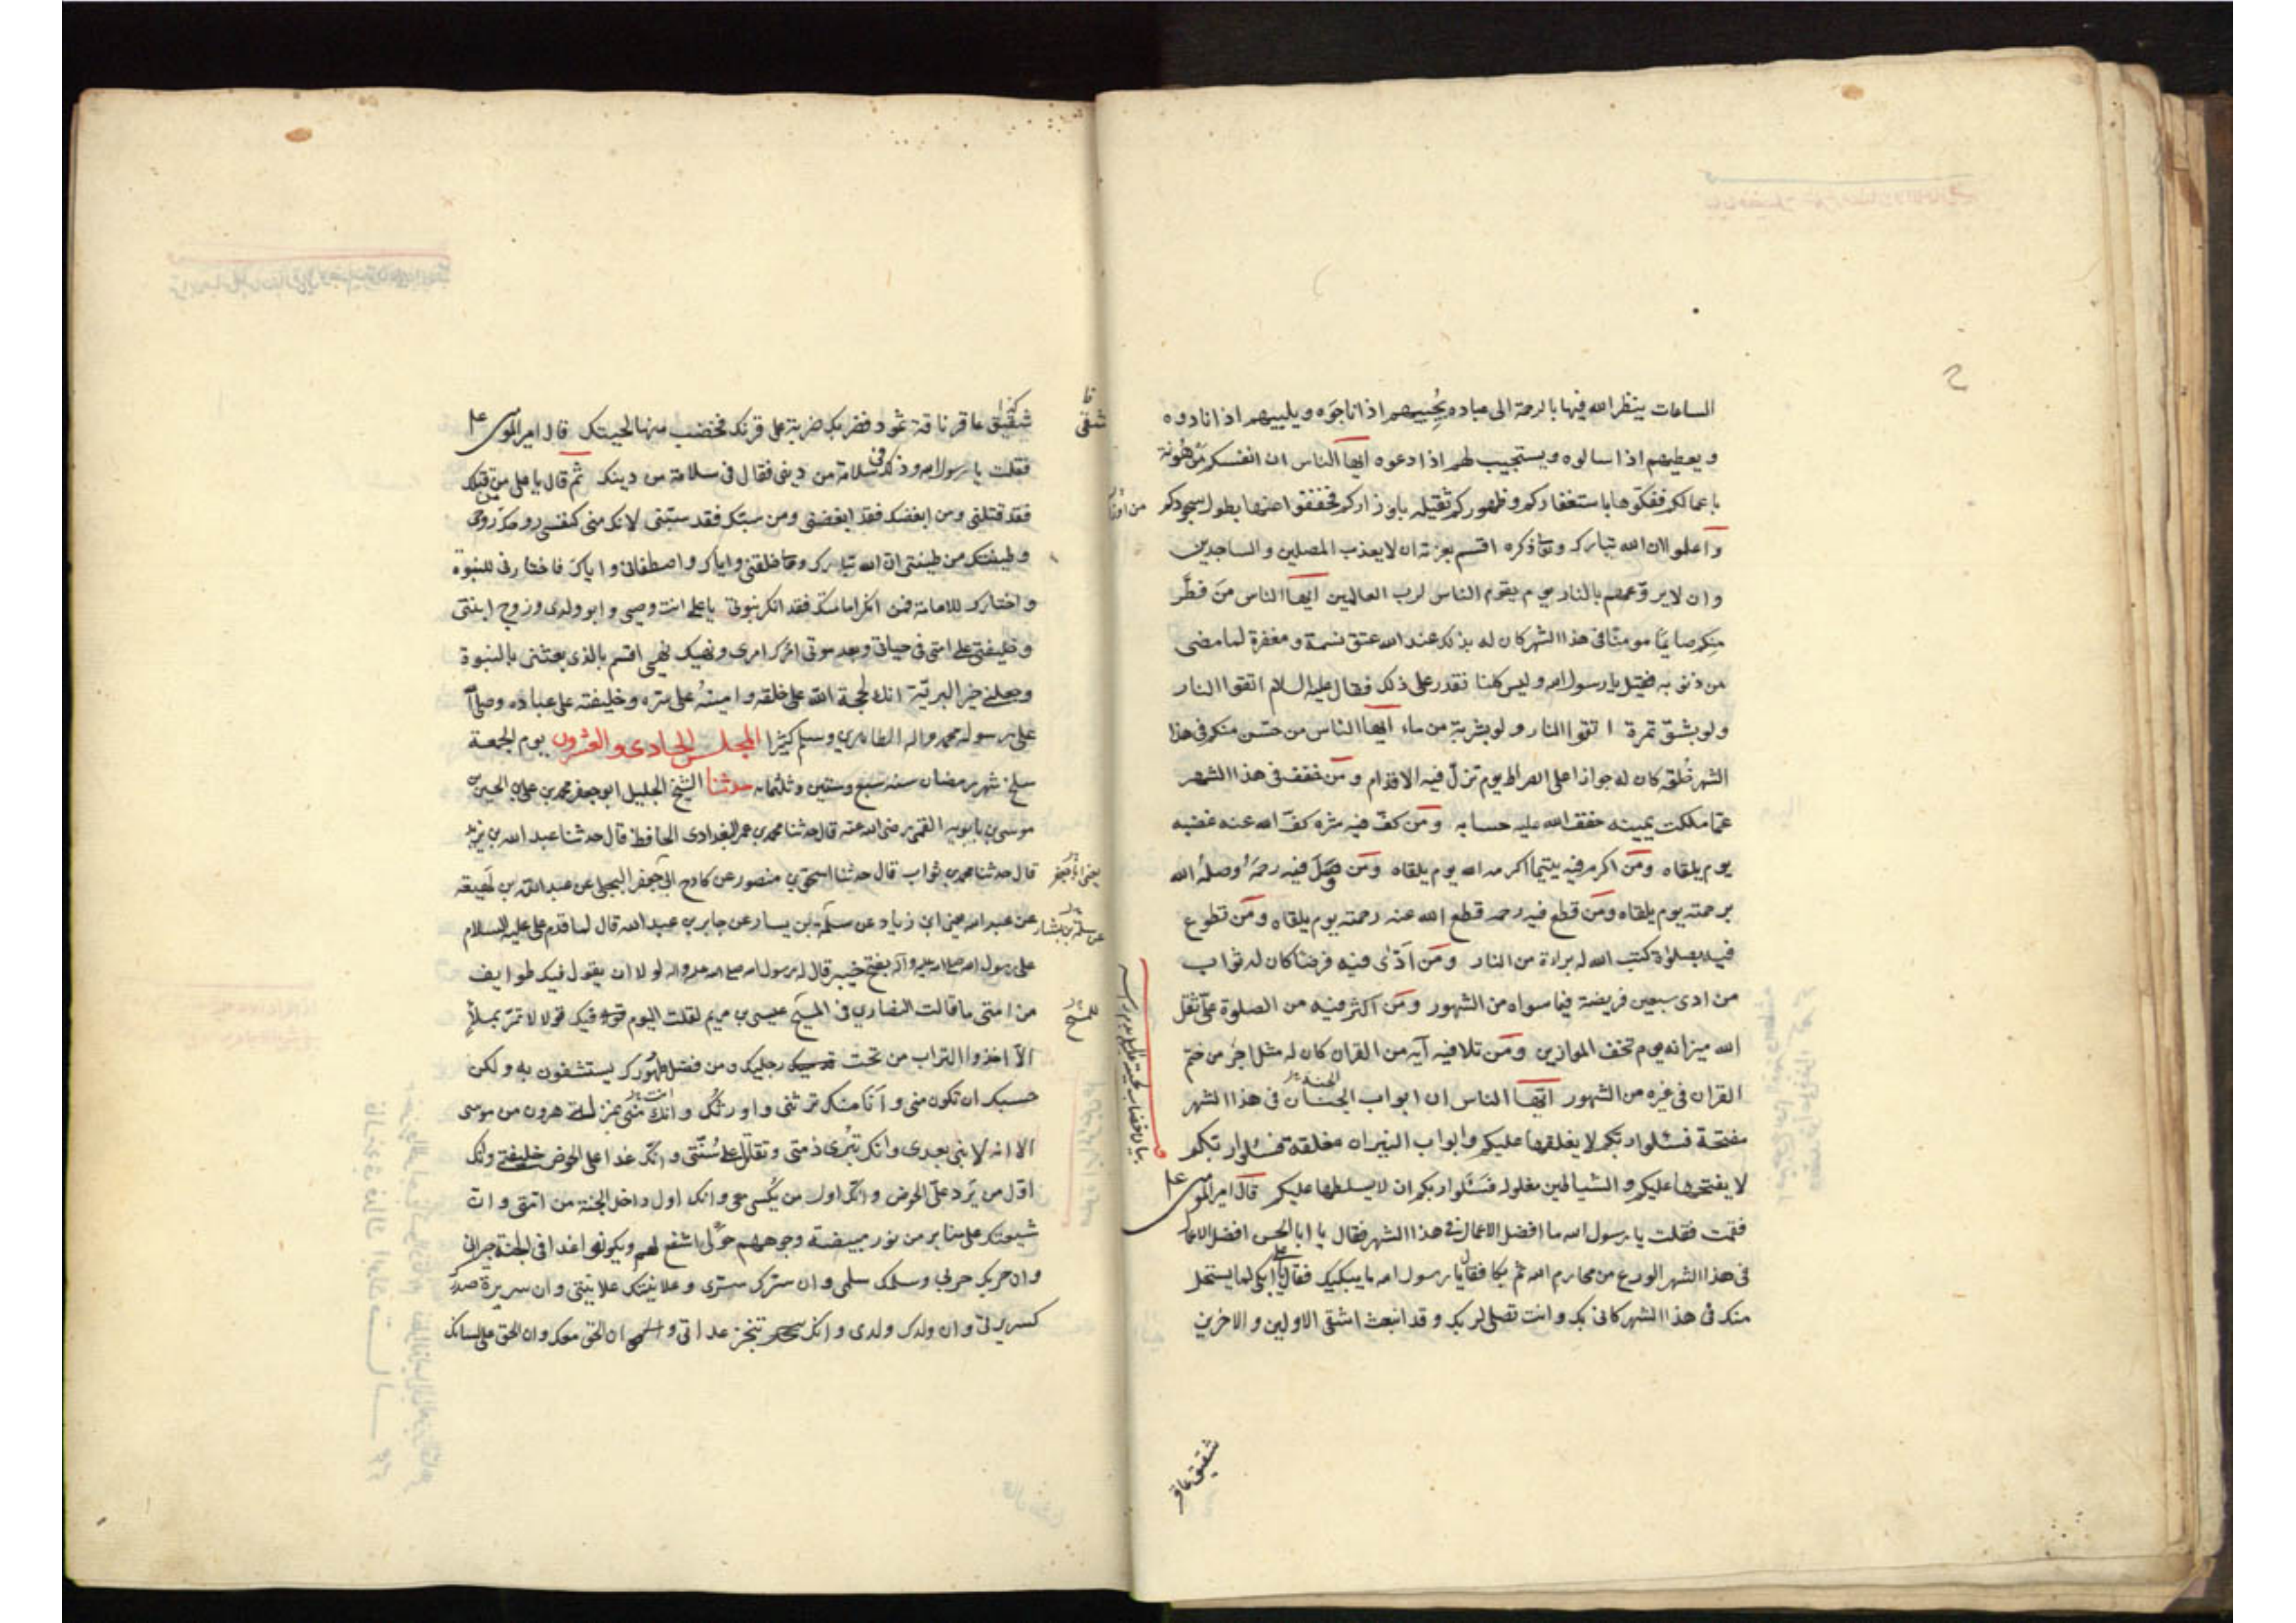 الساعات ينظر الله فيها بالرحمة الى عباده يُجيبهم اذا ناجَوه ويلبيهم اذا نادوه
ويعطيهم اذا سالوه ويستجيب لهم اذا دعوه ايها الناس ان انفسكم مَرهُونة
باعمالكم ففكّوها باستغفاركم وظهوركم ثقيله باوزاركم فخففوا عنها بطول سجودكم
واعلموا ان الله تبارك وتعا ذكره اقسم بعزته ان لا يعذب المصلين والساجدين
وان لا يروّعهم بالنار يوم يقوم الناس لرب العالمين ايها الناس مَن فطَّر
منكم صايمًا مومنًا فى هذا الشهر كان له بذلك عند الله عتق نسمة ومغفرة لما مضى
من ذنوبه فقيل يا رسول الله وليس كلنا نقدر على ذلك فقال عليه السلام اتقوا النار
ولو بشق تمرة اتقوا النار ولو بشربة من ماء ايها الناس من حسّن منكم فى هذا
الشهر خُلقه كان له جوازا على الصراط يوم تزلّ فيه الاقدام ومَن خفف فى هذا الشهر
عمّا ملكت يمينه خفف الله عليه حسابه ومَن كفّ فيه شره كفّ الله عنه غضبه
يوم يلقاه ومَن اكرم فيه يتيما اكرمه الله يوم يلقاه ومَن وصَلَ فيه رحمَهُ وصلهُ الله
برحمته يوم يلقاه ومَن قطع فيه رحمه قطع الله عنه رحمته يوم يلقاه ومَن تطوع
فيه بصلوة كتب الله له براءة من النار ومَن اَدّى فيه فرضا كان له ثواب
من ادى سبعين فريضة فيما سواه من الشهور ومَن اكثر فيه من الصلوة علىّ ثقل
الله ميزانه يوم تخف الموازين ومَن تلا فيه آية من القران كان له مثل اجر من ختم
القران فى غيره من الشهور ايها الناس ان ابواب الجنان فى هذا الشهر
الجنة
مفتحة فسئلوا ربكم لا يغلقها عليكم وابواب النيران مغلقة فسئلوا ربكم
لا يفتحها عليكم والشياطين مغلولة فسَئَلوا ربكم ان لا يسلطها عليكم قال امير المومنين ع
فقمت فقلت يا رسول الله ما افضل الاعمال فى هذا الشهر فقال يا ابا الحسن افضل الاعمال
فى هذا الشهر الورع عن محارم الله ثم بكا فقلت يا رسول الله ما يبكيك فقال يا على ابكى لما يستحل
منك فى هذا الشهر كانى بك وانت تصلى لربك وقد انبعث اشقى الاولين والاخرين
شقيق عاقر
شقيق عاقر ناقة ثمود فضربك ضربة على قرنك فخضب منها لحيتك قال امير المومنين ع
اشقى
فقلت يا رسول الله وذلك فى سلامة من دينى فقال فى سلامة من دينك ثم قال يا على من قتلك
فقد قتلنى ومن ابغضك فقد ابغضنى ومن سبّك فقد سبّنى لانك منى كنفسى روحك من روحى
وطينتك من طينتى ان الله تبارك وتعا خلقنى واياك واصطفانى واياك فاختارنى للنبوة
واختارك للامامة فمن انكر امامتك فقد انكر نبوتى يا على انت وصيى وابو ولدى وزوج ابنتى
وخليفتى على امتى فى حياتى وبعد موتى امرك امرى ونهيك نهيى اقسم بالذى بعثنى بالنبوة
وجعلنى خير البرية انك لحجة الله على خلقه وامينهُ على سره وخليفته على عباده وصلى الله
على رسوله محمد واله الطاهرين وسلم كثيرا المجلس الحادى والعشرون يوم الجمعة
سلخ شهر رمضان سنه سبع وستين وثلثمايه حدثنا الشيخ الجليل ابو جعفر محمد بن على بن الحسين بن
موسى بن بابويه القمى رضى الله عنه قال حدثنا محمد بن عمر البغدادى الحافظ قال حدثنا عبد الله بن يزيد
قال حدثنا محمد بن ثواب قال حدثنا اسحق بن منصور عن كادح ابى جعفر البجلى عن عبد الله بن لَهيعة
يعنى ابا جعفر
عن عبد الرحمن يعنى ابن زياد عن سلمة بن يسار عن جابر بن عبد الله قال لما قدم على عليه السلام
عن سلمة بن بشار
على رسول الله صلى الله عليه وآله بفتح خيبر قال له رسول الله صلى الله عليه واله لولا ان يقول فيك طوايف
من امتى ما قالت النصارى فى المسيح عيسى بن مريم لقلت اليوم فيك قولا لا تمرّ بملأٍ
للمسيح
الّا اخذوا التراب من تحت رجليك ومن فضل طهُورك يستشفون به ولكن
حسبك ان تكون منى وانَا منك ترثنى وارثك وانك منى بمنزلة هرون من موسى
الا انه لا نبى بعدى وانك تبرُى ذمتى وتقاتل على سُنّتى وانك غدا على الحوض خليفتى وانك
اوّل من يَرد علىّ الحوض وانك اول من يُكسى معى وانك اول داخل الجنة من امتى وان
شيعتك على منابر من نور مبيضة وجوههم حَولى اشفع لهم ويكونوا غدا فى الجنة جيرانى
وان حربك حربى وسلمك سلمى وان سترك سترى وعلانيتك علانيتى وان سريرة صدرك
كسريرتى وان ولدك ولدى وانك تنجز عداتى وان الحق معك وان الحق على لسانك